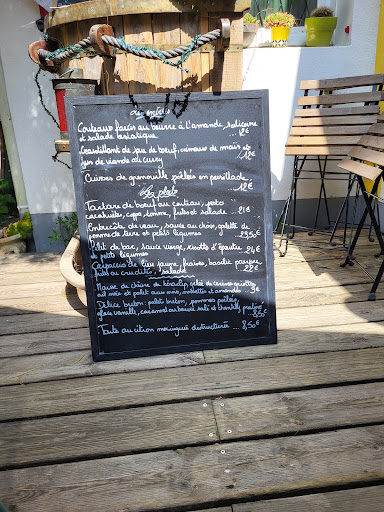 Les entrées
Couteaux farcis au beurre à l'amande, salicorne
et salade asiatique 12€
Croustillant de joue de boeuf, crémeux de maïs et
jus de viande au curry 12€
Cuisses de grenouille poêlées en persillade
12€
Les plats
Tartare de boeuf au couteau, pesto
cacahuètes, copa, tomme, frites et salade 21€
Entrecôte de veau, sauce au choix, galette de
pomme de terre et petits légumes 22,50€
Filet de bar, sauce vierge, risotto d'épeautre
et petits légumes 24€
Carpaccio de lieu jaune, fraises, basilic pourpre
frites ou crudités, salade 22€
Mousse de chèvre de gelée de cerises griottes
et amandes 9€
Délice breton: palet breton, pommes poêlées,
glace vanille, caramel au beurre salé et chantilly praliné
8,50€
Tarte au citron meringuée destructurée ... 8,50€